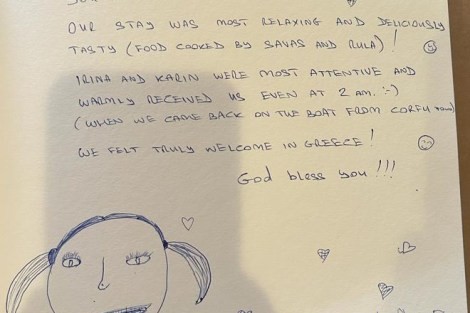 OUR STAY WAS MOST RELAXING AND DELICIOUSLY
TASTY (FOOD COOKED BY SAVAS AND RULA)!
IRINA AND KARIN WERE MOST ATTENTIVE AND
WARMLY RECEIVED US EVEN AT 2 AM. :-)
(WHEN WE CAME BACK ON THE BOAT FROM CORFU
WE FELT TRULY WELCOME IN GREECE!
God bless you!!!